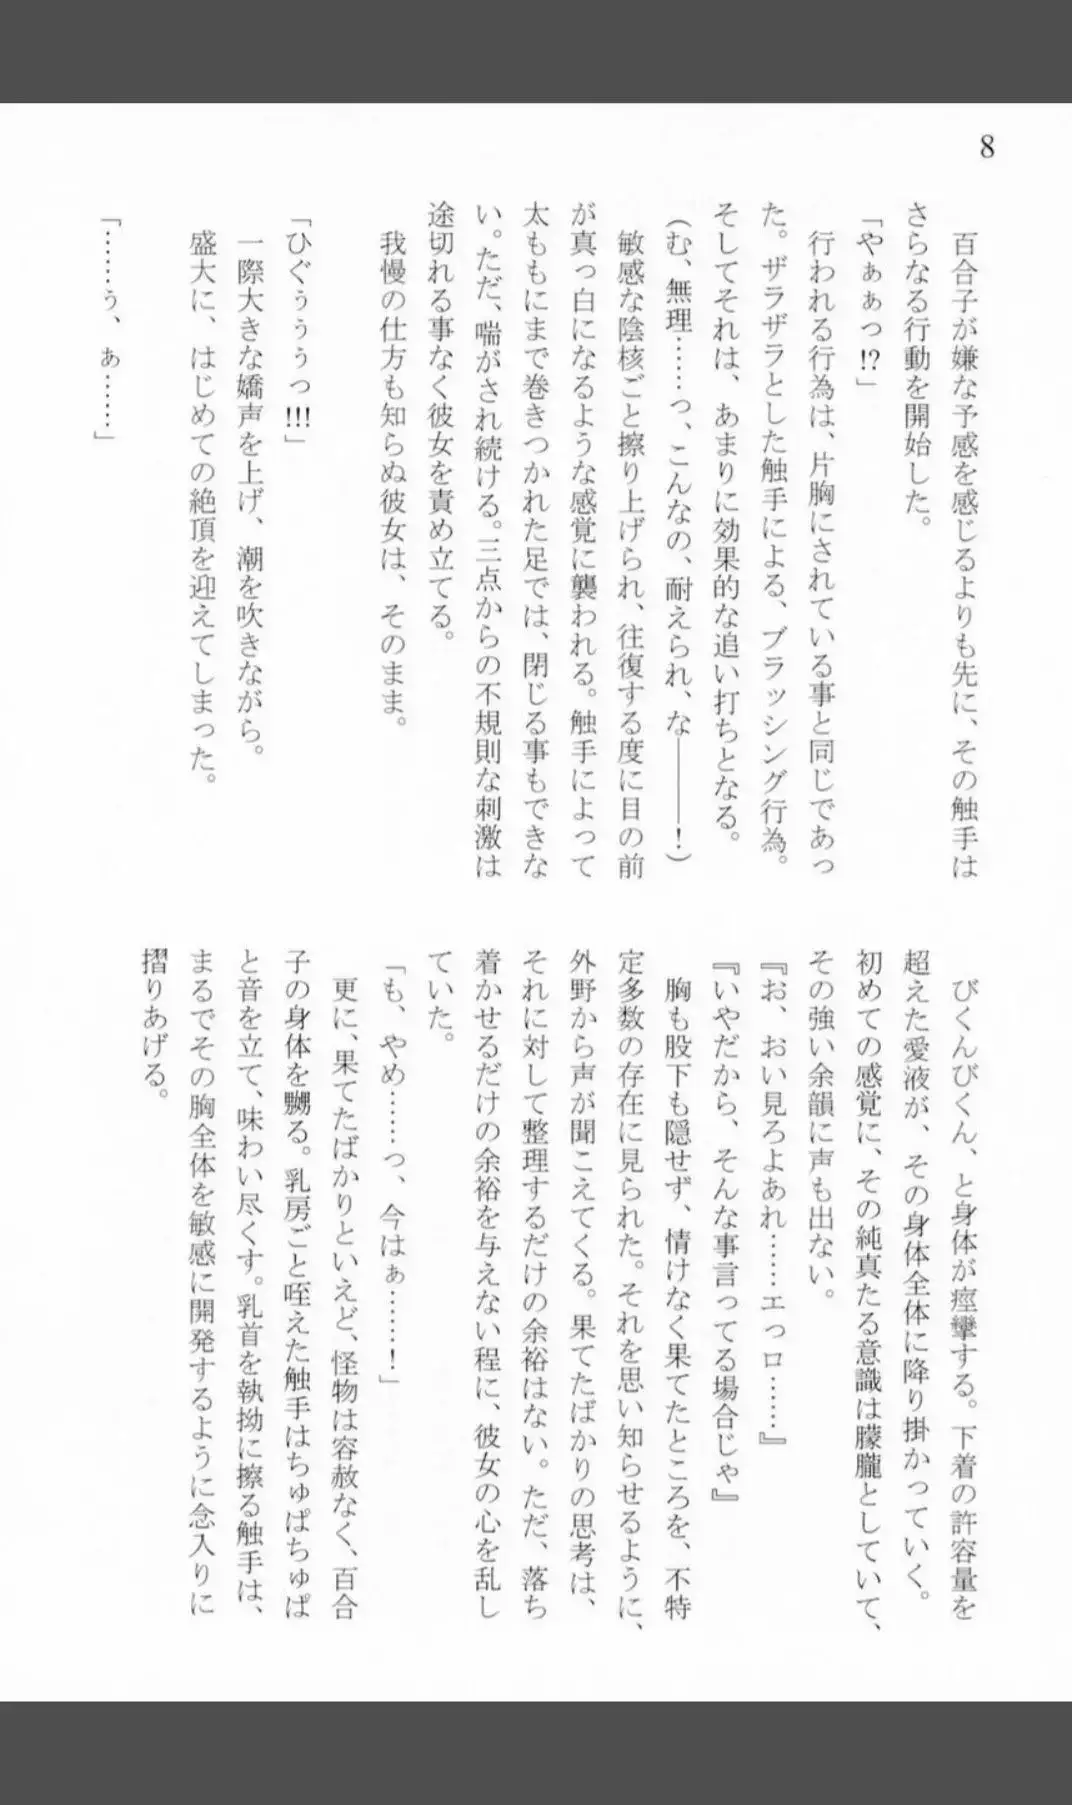 8
百合子が嫌な予感を感じるよりも先に、その触手は
さらなる行動を開始した。
「やぁぁっ!?」
行われる行為は、片胸にされている事と同じであっ
た。ザラザラとした触手による、ブラッシング行為。
そしてそれは、あまりに効果的な追い打ちとなる。
(む、無理……っ、こんなの、耐えられ、な――――！)
敏感な陰核ごと擦り上げられ、往復する度に目の前
が真っ白になるような感覚に襲われる。触手によって
太ももにまで巻きつかれた足では、閉じる事もできな
い。ただ、喘がされ続ける。三点からの不規則な刺激は
途切れる事なく彼女を責め立てる。
我慢の仕方も知らぬ彼女は、そのまま。
「ひぐぅぅぅっ!!!」
一際大きな嬌声を上げ、潮を吹きながら。
盛大に、はじめての絶頂を迎えてしまった。
「……ぅ、ぁ……」
びくんびくん、と身体が痙攣する。下着の許容量を
超えた愛液が、その身体全体に降り掛かっていく。
初めての感覚に、その純真たる意識は朦朧としていて、
その強い余韻に声も出ない。
『お、おい見ろよあれ……エっロ……』
『いやだから、そんな事言ってる場合じゃ』
胸も股下も隠せず、情けなく果てたところを、不特
定多数の存在に見られた。それを思い知らせるように、
外野から声が聞こえてくる。果てたばかりの思考は、
それに対して整理するだけの余裕はない。ただ、落ち
着かせるだけの余裕を与えない程に、彼女の心を乱し
ていた。
「も、やめ……っ、今はぁ……！」
更に、果てたばかりといえど、怪物は容赦なく、百合
子の身体を嬲る。乳房ごと咥えた触手はちゅぱちゅぱ
と音を立て、味わい尽くす。乳首を執拗に擦る触手は、
まるでその胸全体を敏感に開発するように念入りに
摺りあげる。